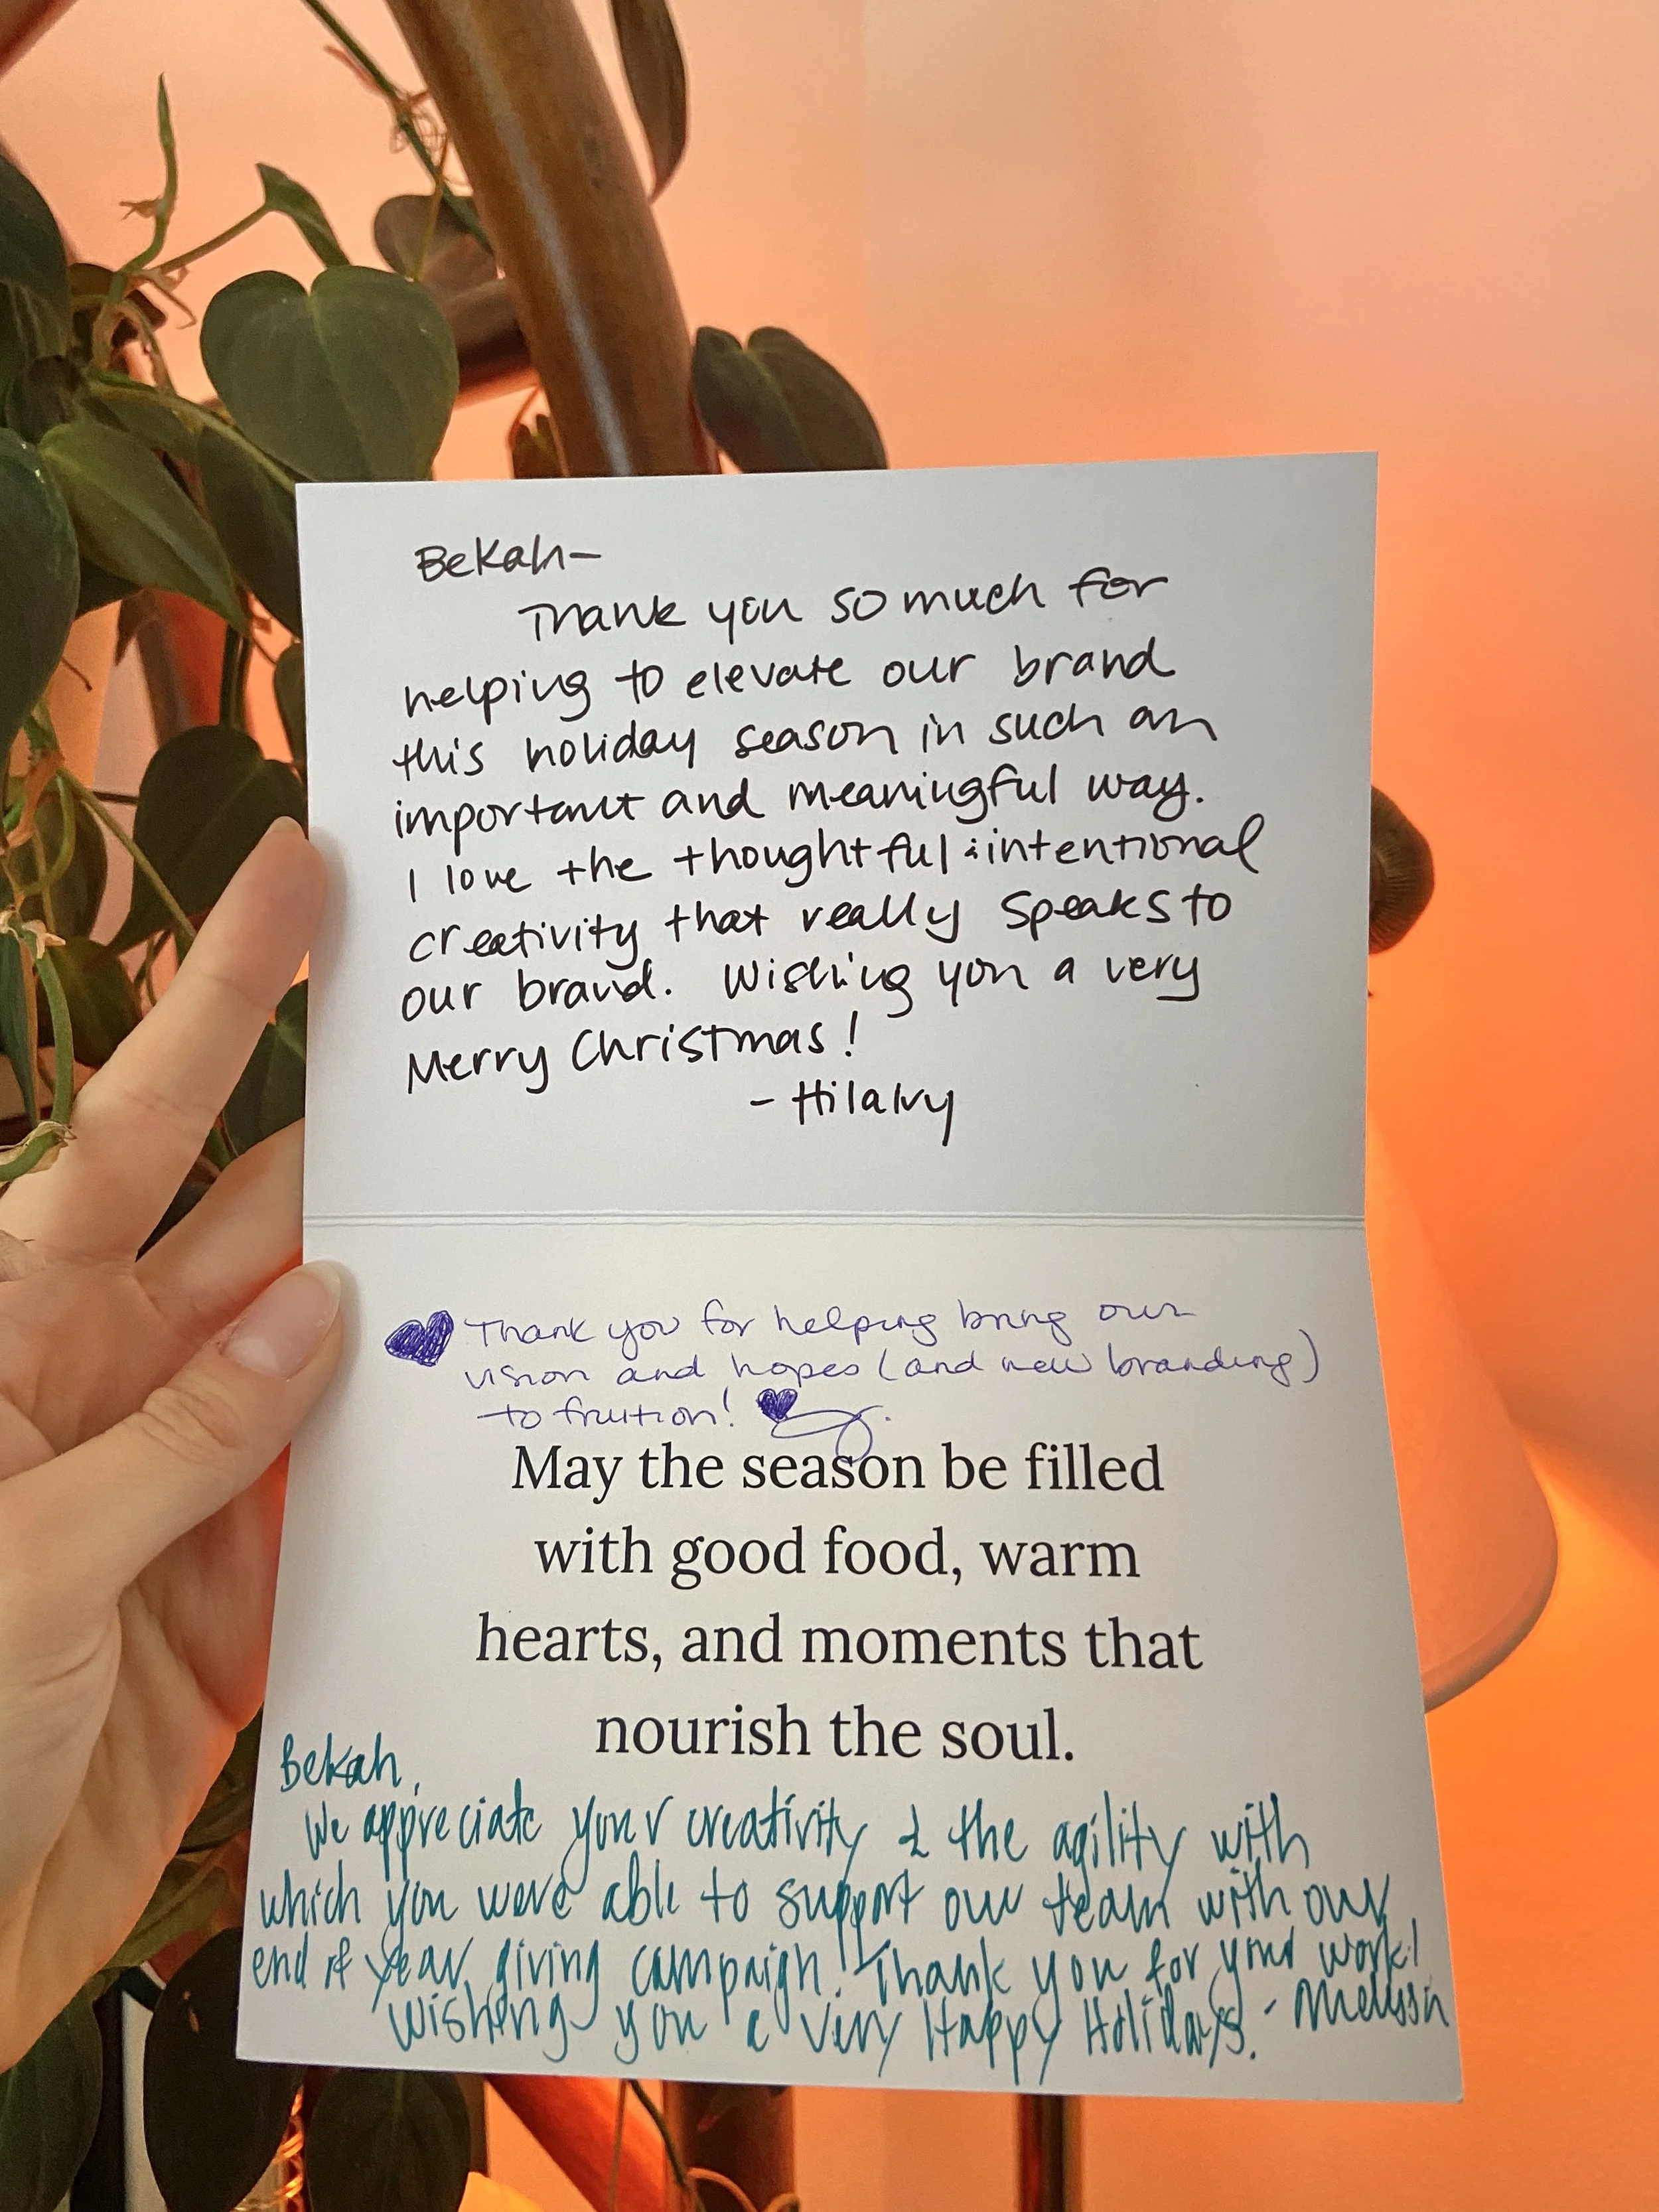 Bekah–
Thank you so much for
helping to elevate our brand
this holiday season in such an
important and meaningful way.
I love the thoughtful & intentional
creativity that really speaks to
our brand. Wishing you a very
Merry Christmas!
- Hilary
Thank you for helping bring our
vision and hopes (and new branding)
to fruition!
May the season be filled
with good food, warm
hearts, and moments that
nourish the soul.
Bekah,
We appreciate your creativity & the agility with
which you were able to support our team with our
end of year giving campaign! Thank you for your work!
Wishing you a Very Happy Holidays. - Melissa